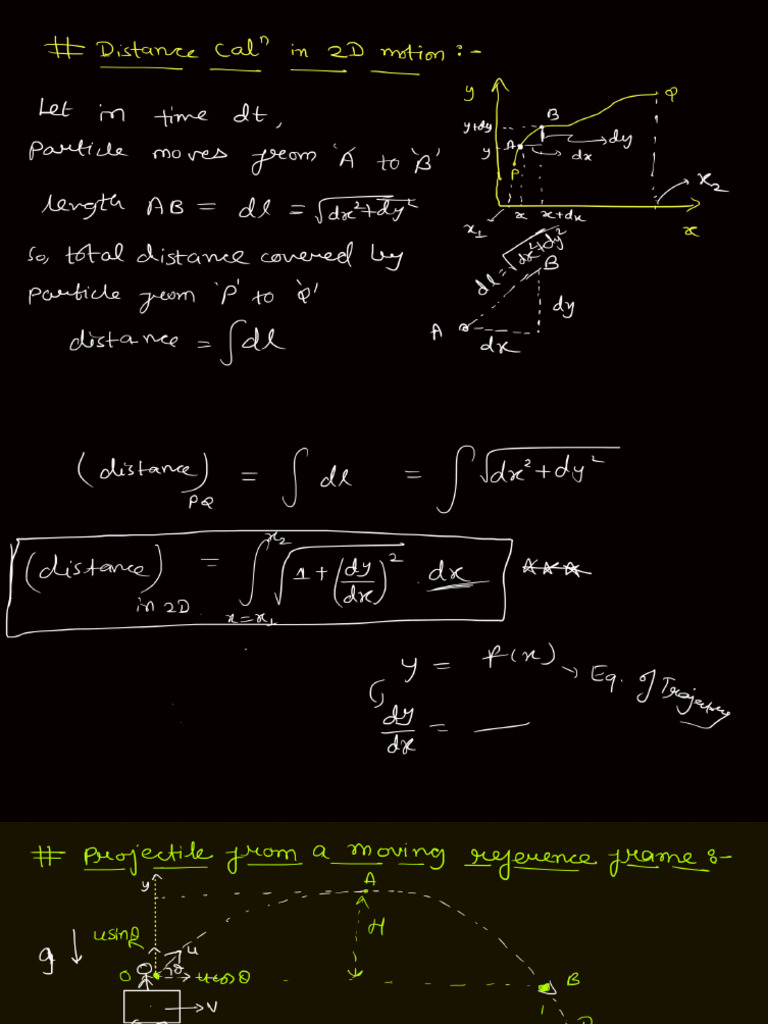 # Distance Calⁿ in 2D motion :-
Let in time dt,
Particle moves from 'A' to 'B'
length AB = dl = √(dx²+dy²)
So, total distance covered by
Particle from 'P' to 'Q'
distance = ∫dl
y
Q
B
y+dy
A
dy
y
dx
P
x₂
x₁
x
x+dx
x
dl = √(dx²+dy²)
B
dy
A
dx
(distance)PQ = ∫ dl = ∫ √(dx²+dy²)
(distance)in 2D = ∫x=x₁^x₂ √(1+(dy/dx)²) . dx ***
y = f(x) → Eq. of Trajectory
dy/dx = —
# Projectile from a moving reference frame :-
y
A
usinθ
u
H
g ↓
O
θ
ucosθ
B
→V